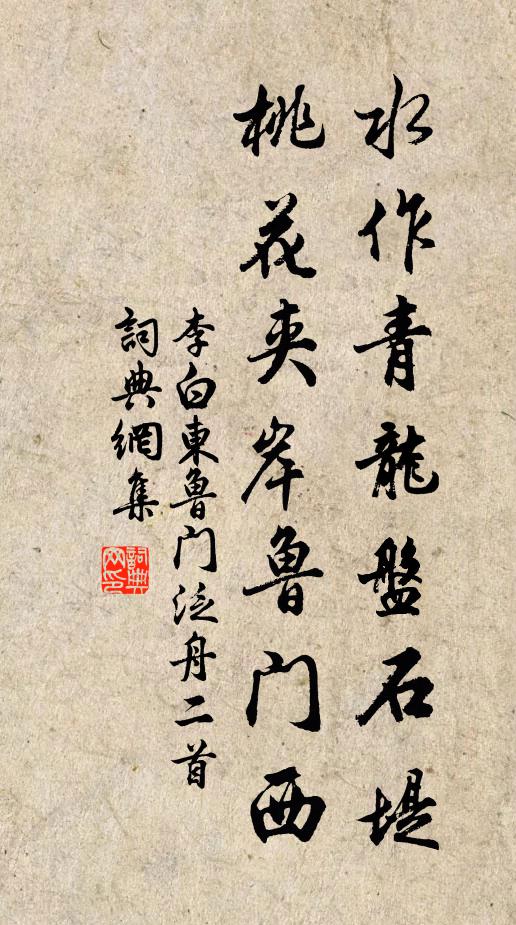 水作青龍盤石堤
桃花夾岸魯門西
李白東魯門泛舟二首
詞典網集
詞典
网印